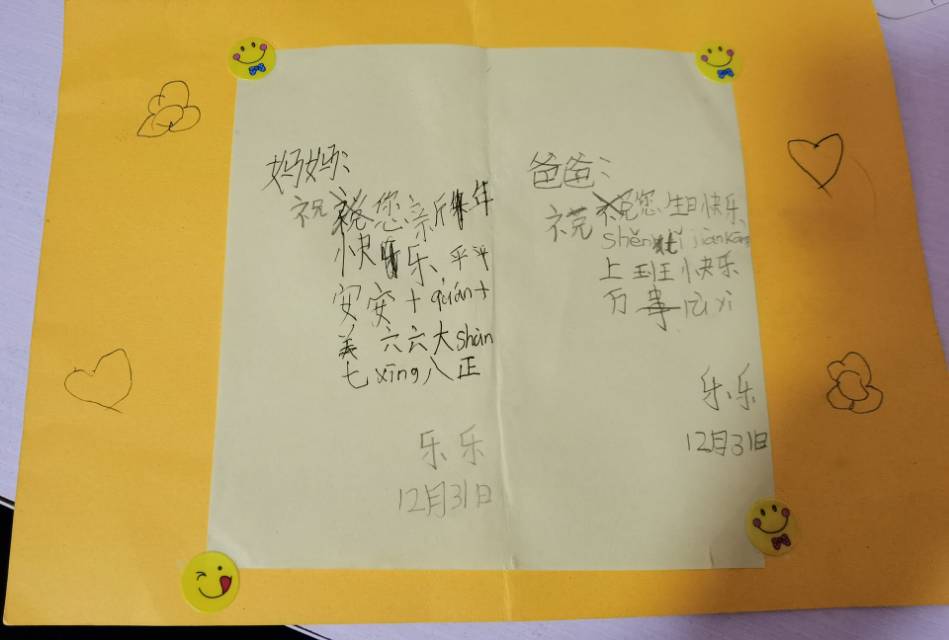 妈妈:
祝您亲斤年
快乐,平平
安安十quán十
美 六六大shàn
七xīng八正
乐乐
12月31日
爸爸:
祝您生日快乐
shēn tǐ jiànkāng
上班快乐
万事rú yì
乐乐
12月31日